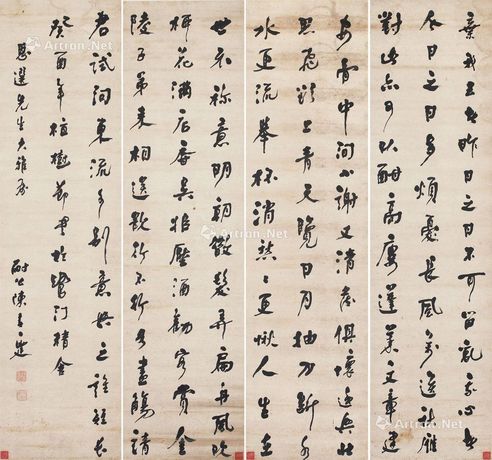 棄我去者昨日之日不可留亂我心者
今日之日多煩憂長風萬里送秋雁
對此亦可以酣高樓蓬萊文章建
安骨中間小謝又清發俱懷逸興壯
思飛欲上青天覽日月抽刀斷水
水更流舉杯消愁愁更愁人生在
世不称意明朝散髮弄扁舟風吹
柳花滿店香吳姬壓酒勸客嘗金
陵子弟來相送欲行不行各盡觴請
君試問東流水別意與之誰短長
癸酉年植樹節書於鷺門精舍
先生大雅屬
耐公陳
Artron.Net
Artron.Net
Artron.Net
Artron.Net